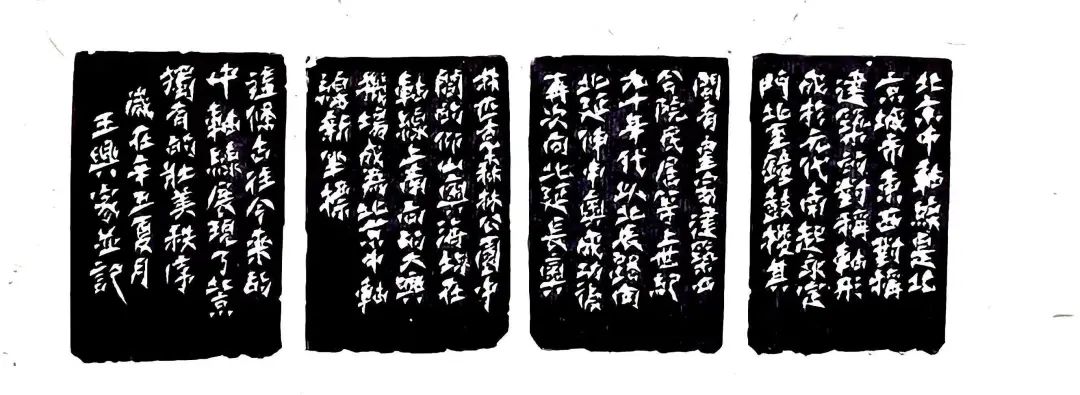 北京中軸線是北
京城市東西對稱
建築的對稱軸形
成於元代南起永定
門北至鐘鼓樓其
間有皇家建築四
合院民居等上世紀
九十年代以北辰路向
北延伸申奧成功後
再次向北延長奧
林匹克森林公園中
間的仰山奧海均在
軸線上南面的大興
機場成為北京中軸
線新坐標
這條古往今來的
中軸線展現了北京
獨有的壯美秩序
歲在辛丑夏月
王興家並記